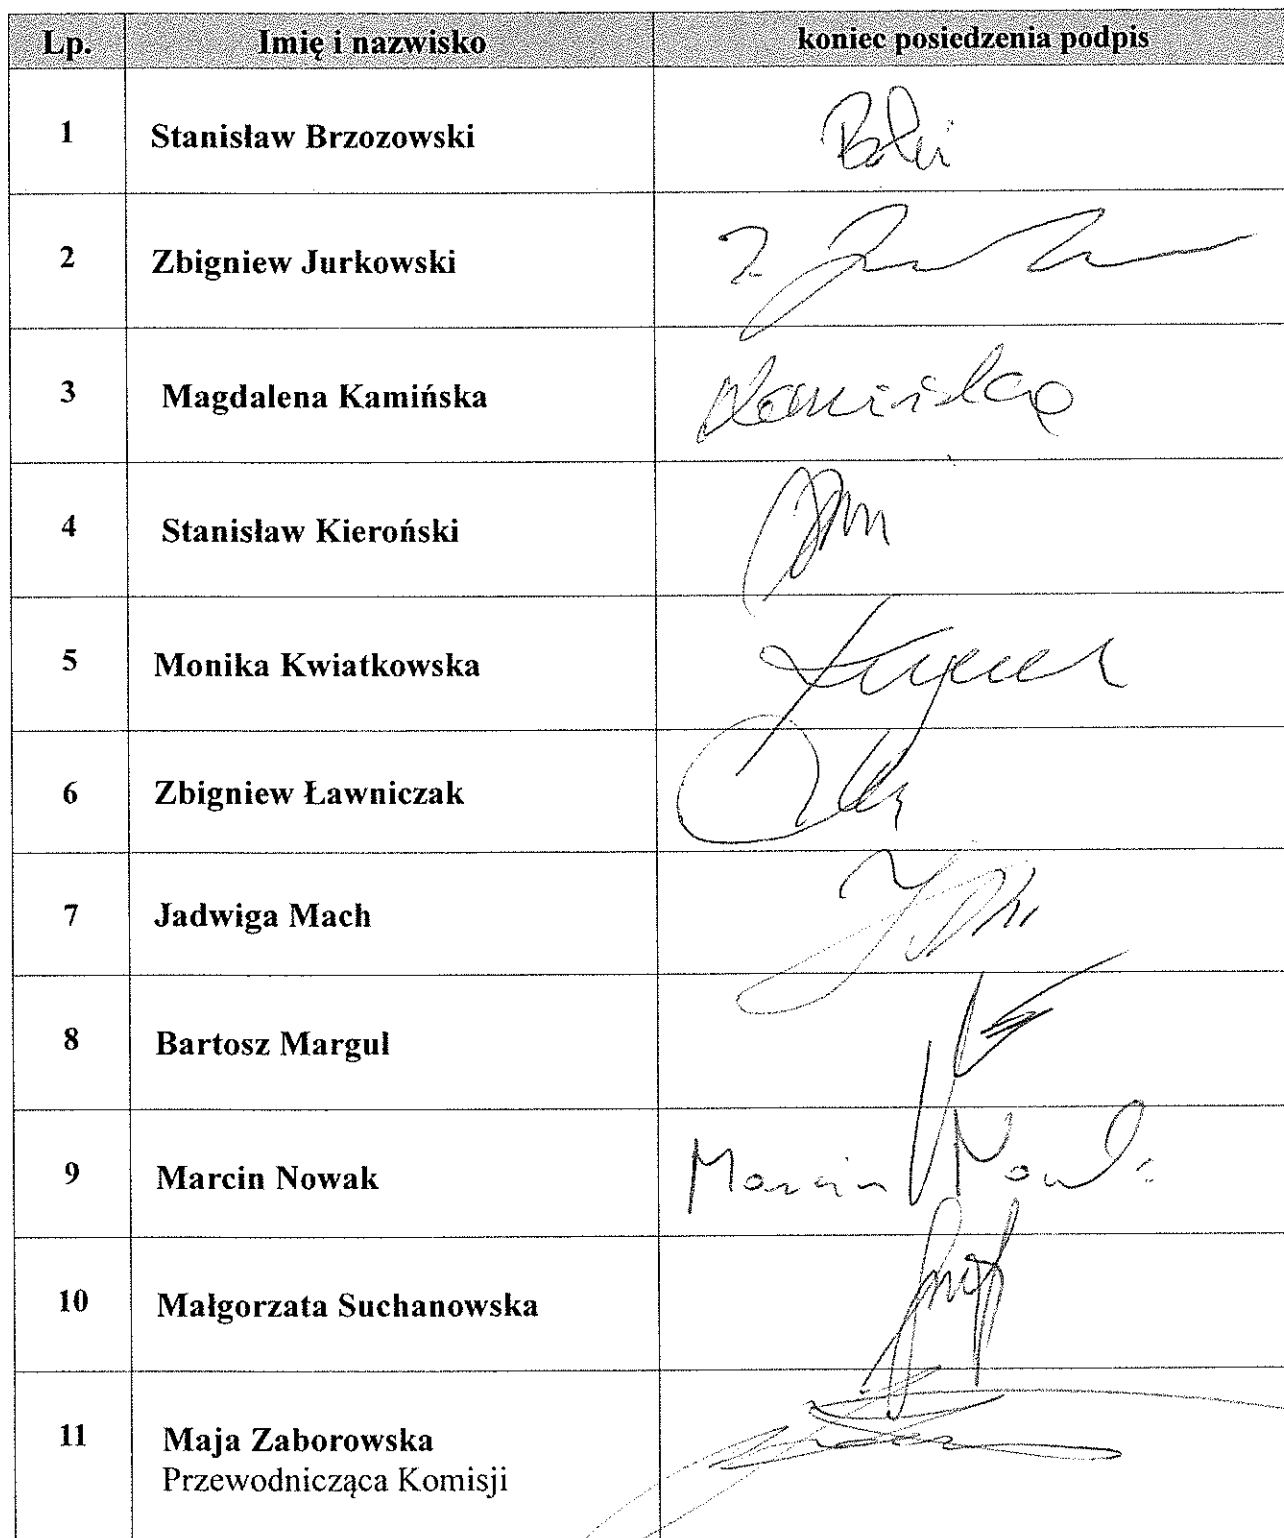 Lp. Imię i nazwisko koniec posiedzenia podpis
1 Stanisław Brzozowski
2 Zbigniew Jurkowski
3 Magdalena Kamińska Kamińska
4 Stanisław Kieroński
5 Monika Kwiatkowska
6 Zbigniew Ławniczak
7 Jadwiga Mach
8 Bartosz Margul
9 Marcin Nowak Marcin Nowak
10 Małgorzata Suchanowska
11 Maja Zaborowska
Przewodnicząca Komisji